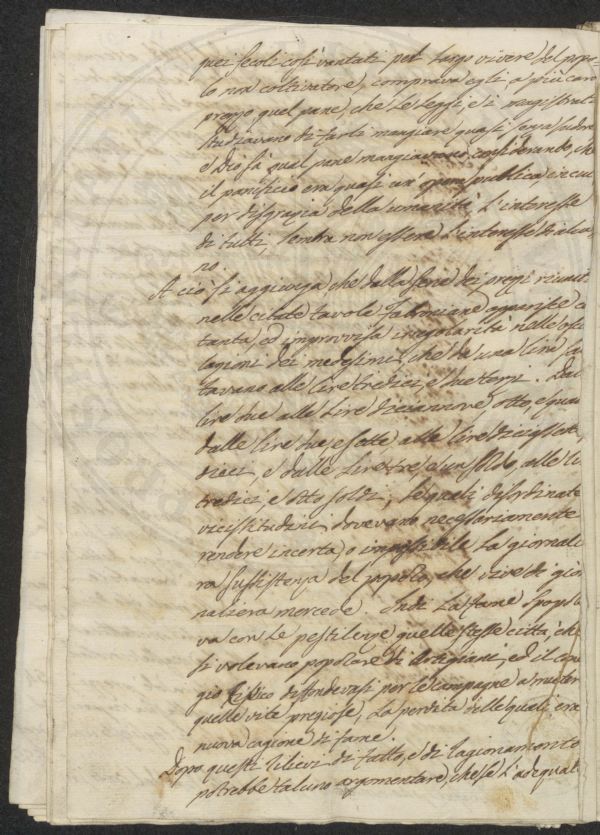 quei secoli così vantati pel largo vivere del popo
lo non coltivatore, comprava egli a più caro
prezzo quel pane, che le leggi, e i magistrati
studiavano di farli mangiare quasi senza sudore
e Dio sa qual pane mangiavano considerando, che
il panificio era quasi un' opera pubblica, in cui
per disgrazia della umanità l'interesse
di tutti, sembra non essere l'interesse di alcu
no.
A ciò si aggiunga che dalla serie dei prezzi
nelle citate tavole apparisce
tanta, ed improvvisa irregolarità nelle
lazioni dei medesimi, che da una lira
tavano alle lire tredici, e due terzi. Dal
lire due alle lire diciannove, otto, e
dalle lire due e sette alle lire diciassette,
dieci, e dalle lire tre, e un soldo, alle li
tredici, e otto soldi; le quali disordinate
vicissitudini dovevano necessariamente
rendere incerta, o impossibile la giornali
era sussistenza del popolo, che vive di gior
naliera mercede. Indi la fame spopola
va con le pestilenze quelle stesse città, che
si volevano popolare di artigiani, ed il
gio diffondevasi per le campagne a mieter
quelle vite preziose, la perdita delle quali era
nuova cagione di fame.
Dopo questi rilievi di fatto, e di ragionamento
potrebbe taluno argomentare, che se l'adequat